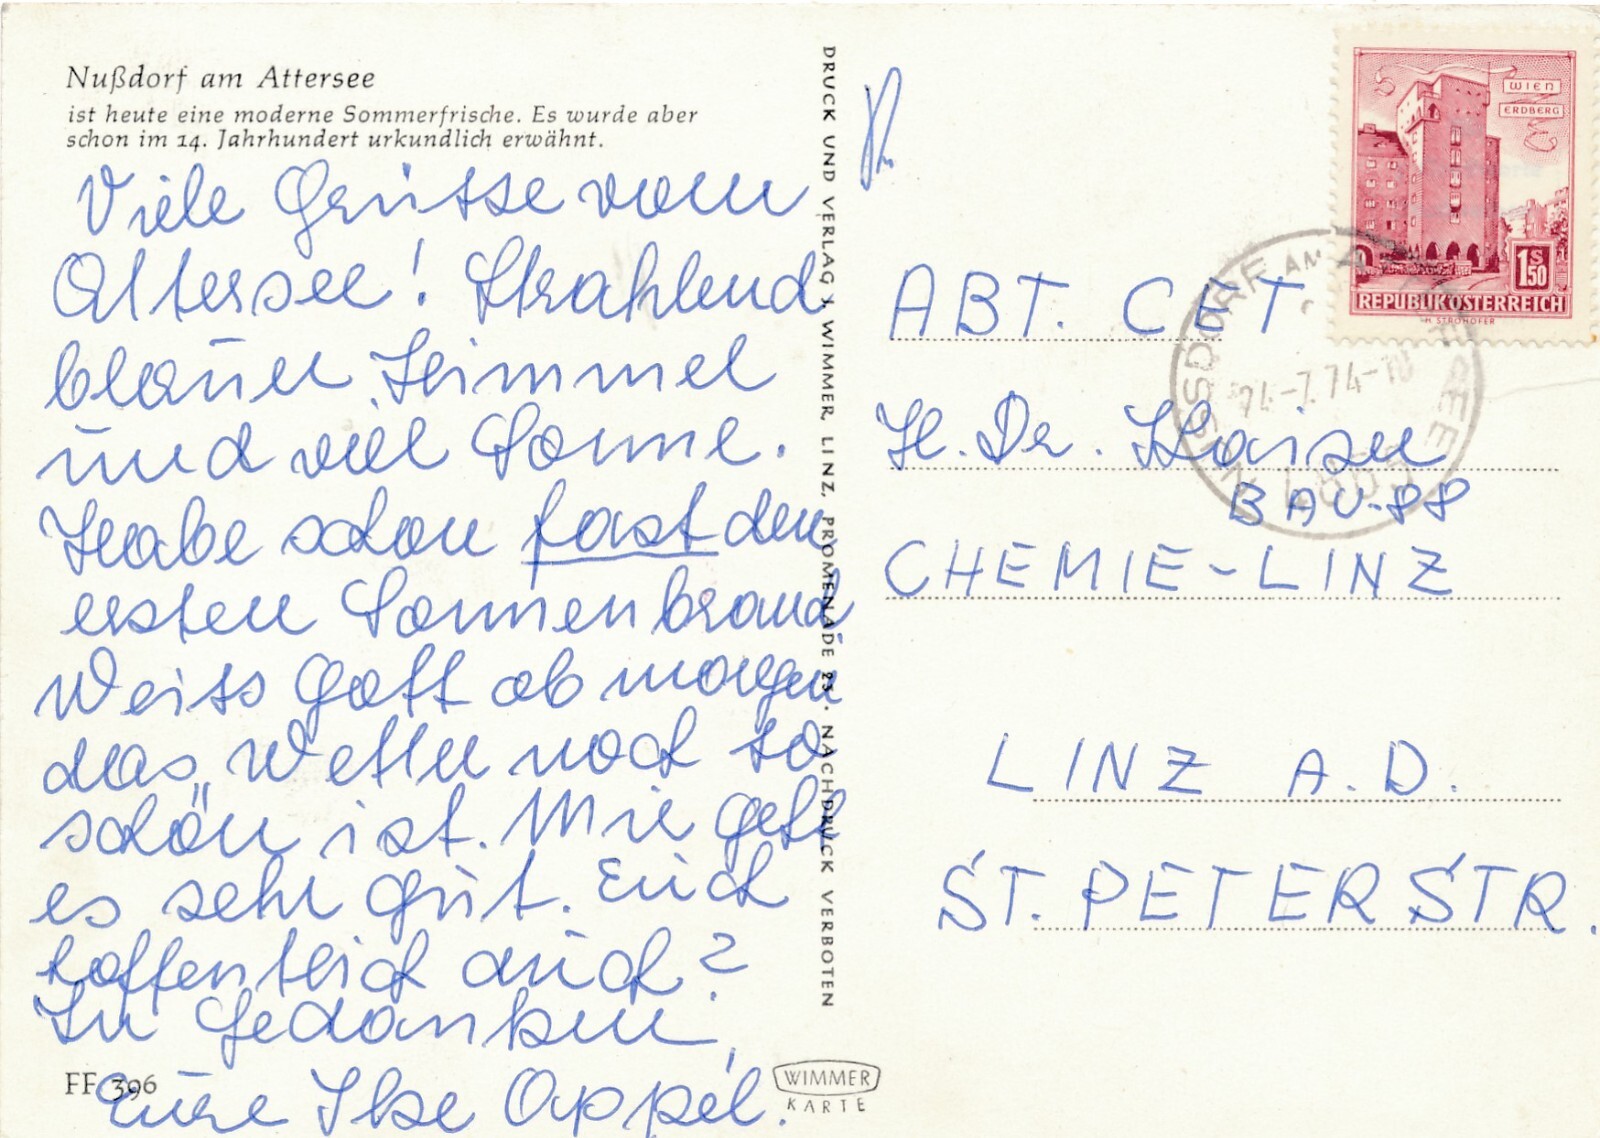 Nußdorf am Attersee
ist heute eine moderne Sommerfrische. Es wurde aber
schon im 14. Jahrhundert urkundlich erwähnt.
Viele Grüsse vom
Attersee! Strahlend
blauer Himmel
und viel Sonne.
Habe schon fast den
ersten Sonnenbrand.
Weiss Gott ob morgen
das Wetter noch so
schön ist. Mir geht
es sehr gut. Euch
hoffentlich auch?
In Gedanken,
Eure Ilse Appel.
FF 396
WIMMER
KARTE
DRUCK UND VERLAG J. WIMMER, LINZ, PROMENADE 23 · NACHDRUCK VERBOTEN
WIEN
ERDBERG
1S50
REPUBLIK ÖSTERREICH
H. STROHOFER
NUSSDORF AM ATTERSEE
24.-7.74-18
4865
ABT. CET.
H. Dr. Kaiser
BAU-88
CHEMIE-LINZ
LINZ A.D.
ST. PETER STR.